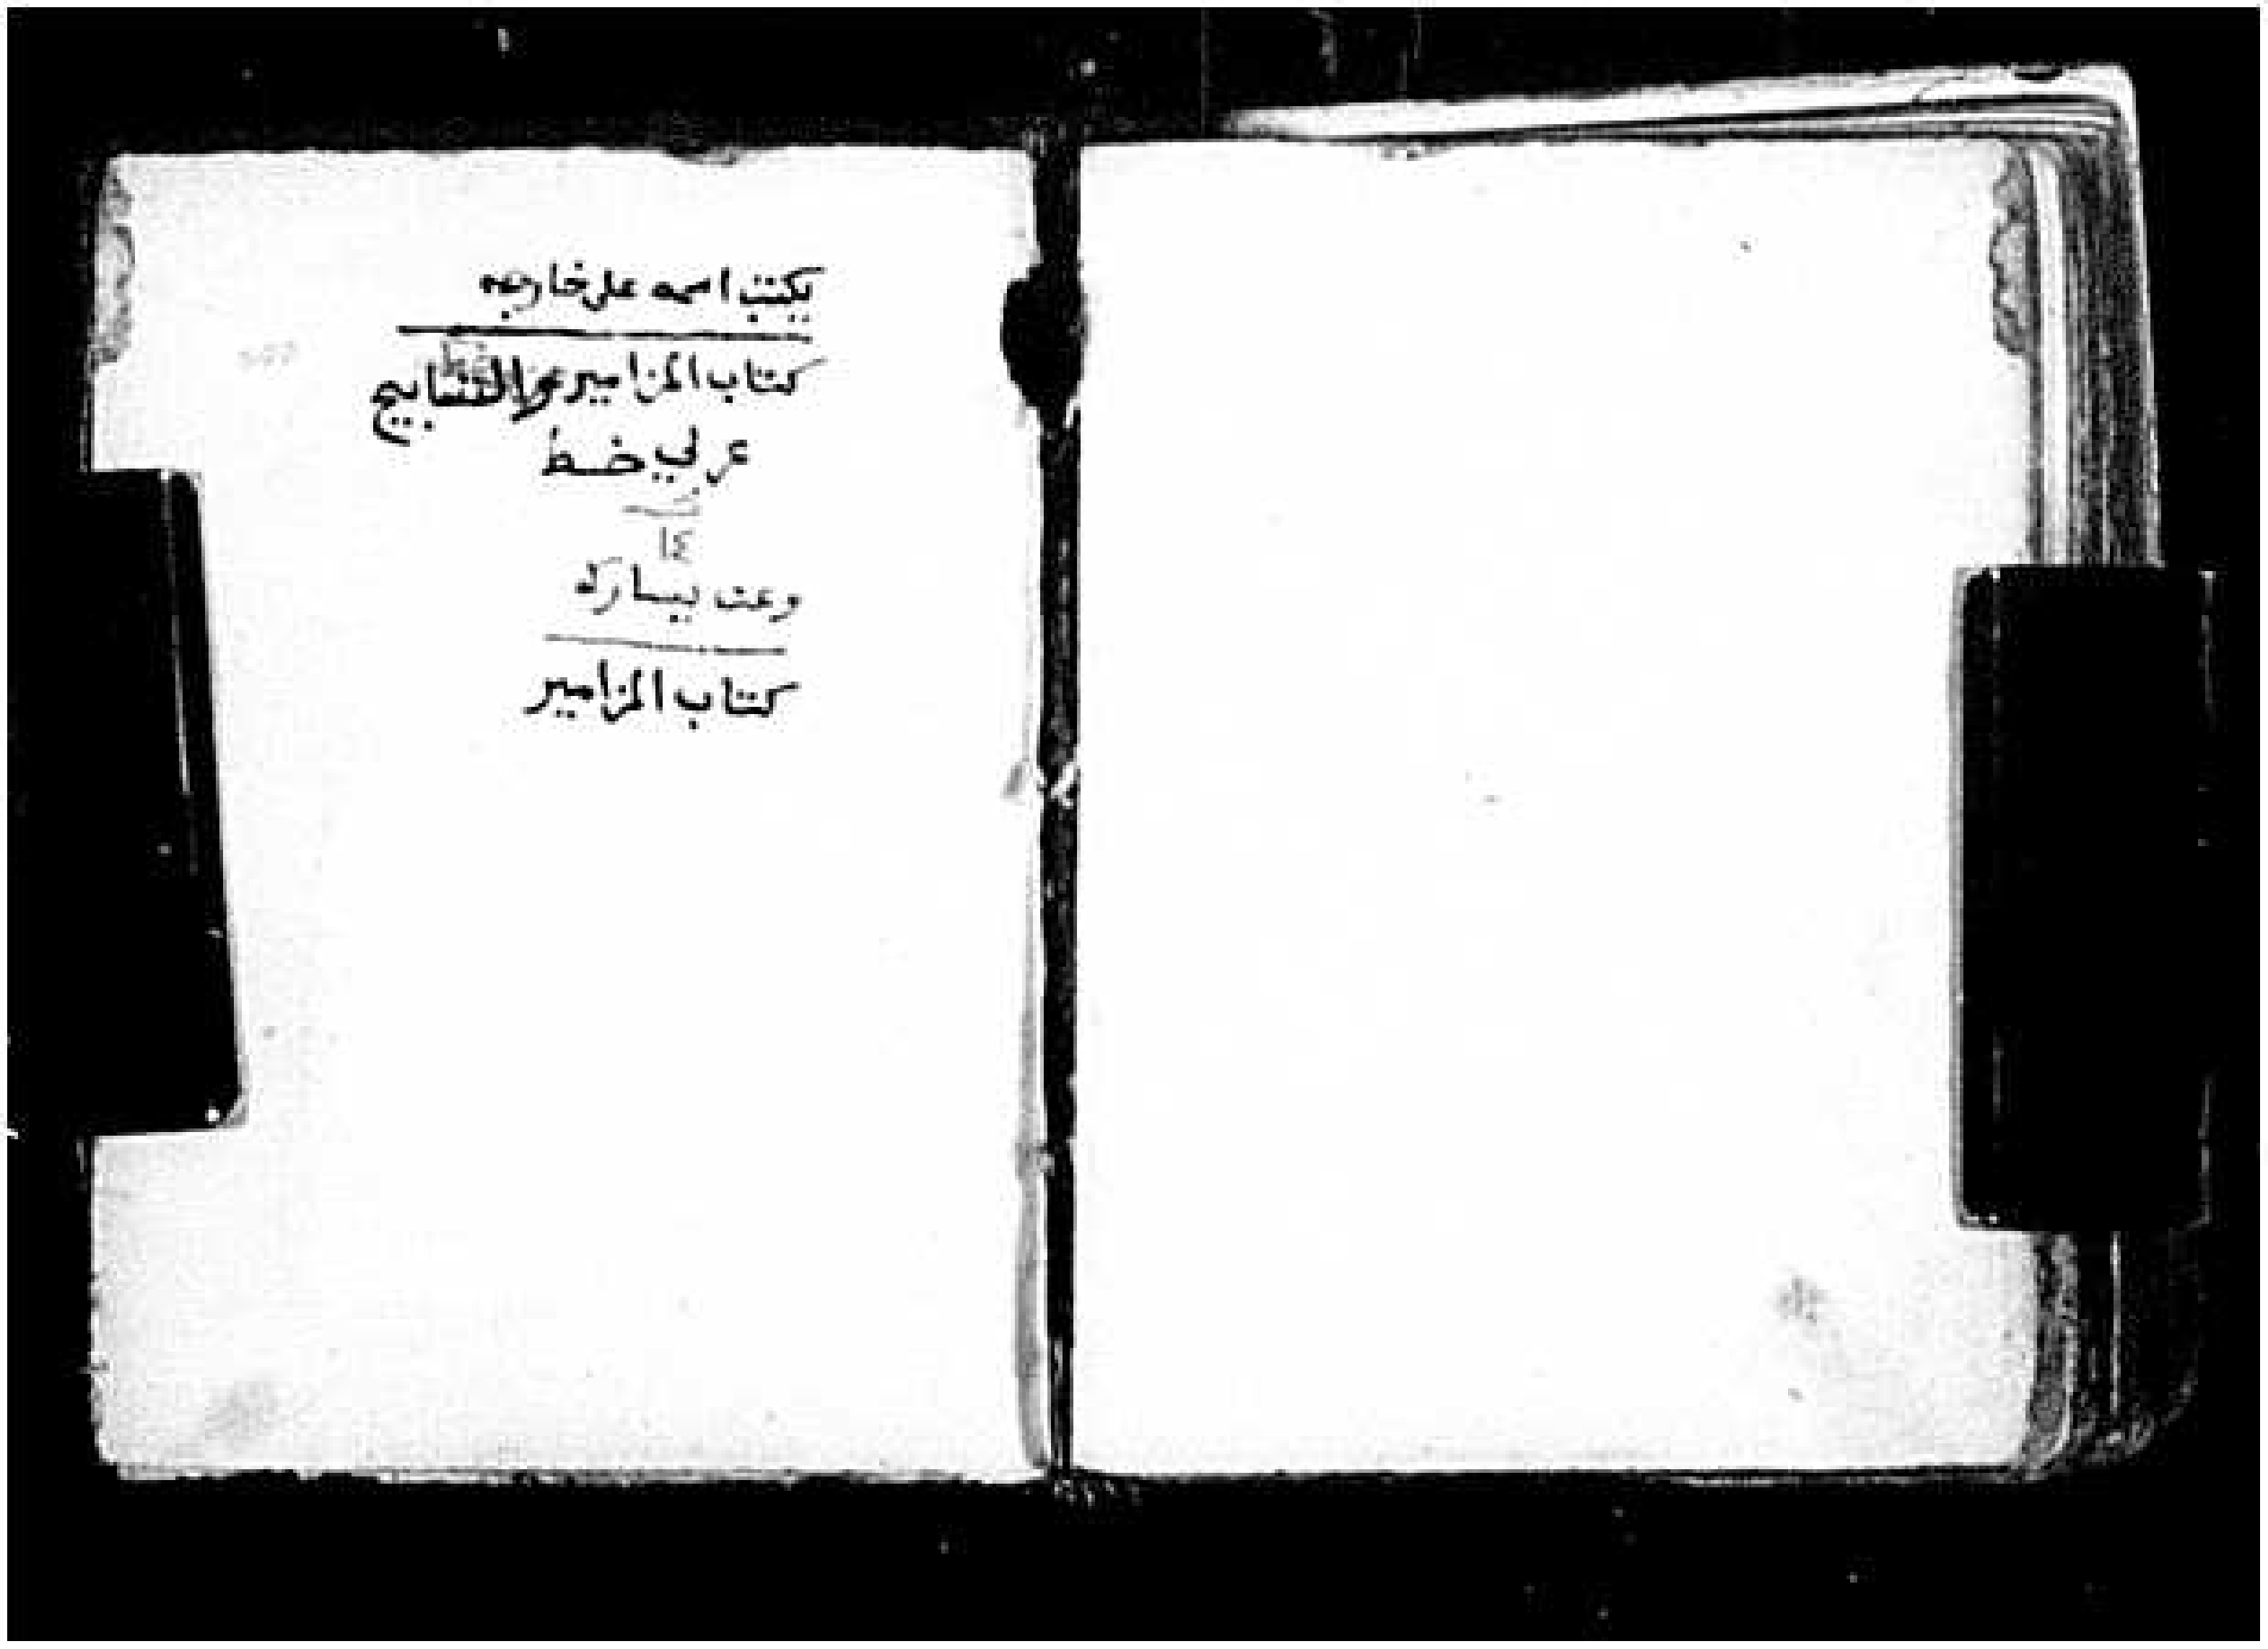 يكتب اسمه على خارجه
كتاب المزامير والتسابيح
عربي خط
١٤
وعن يساره
كتاب المزامير